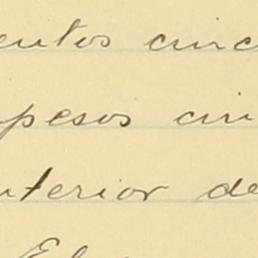 entos cinc
pesos cin
nterior de
El